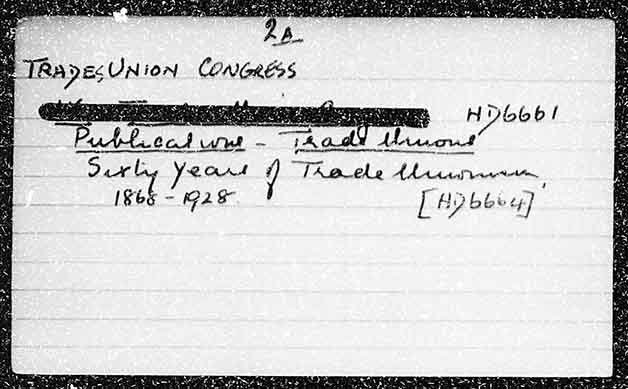 2A
TRADES UNION CONGRESS
HD6661
Publications - Trade Unions
Sixty Years of Trade Unionism,
1868-1928.
[HD6664]